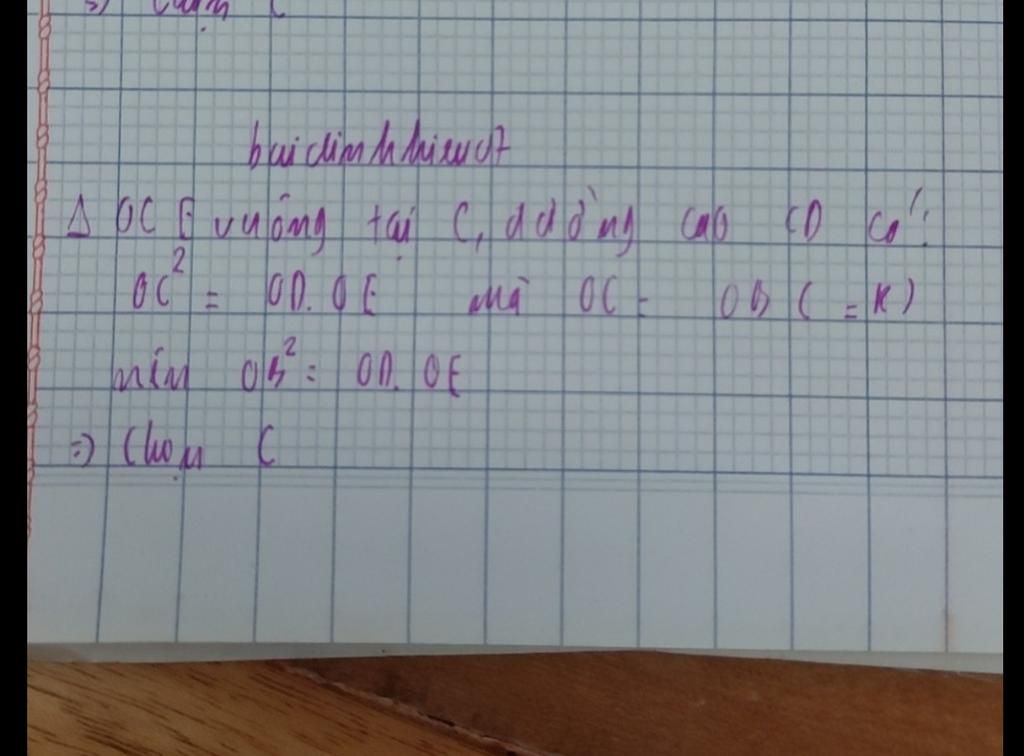 =) Chọn C
buidinhhieu07
Δ OCE vuông tại C, đường cao CD có:
OC² = OD.OE mà OC = OB (=R)
nên OB² = OD.OE
=) Chọn C